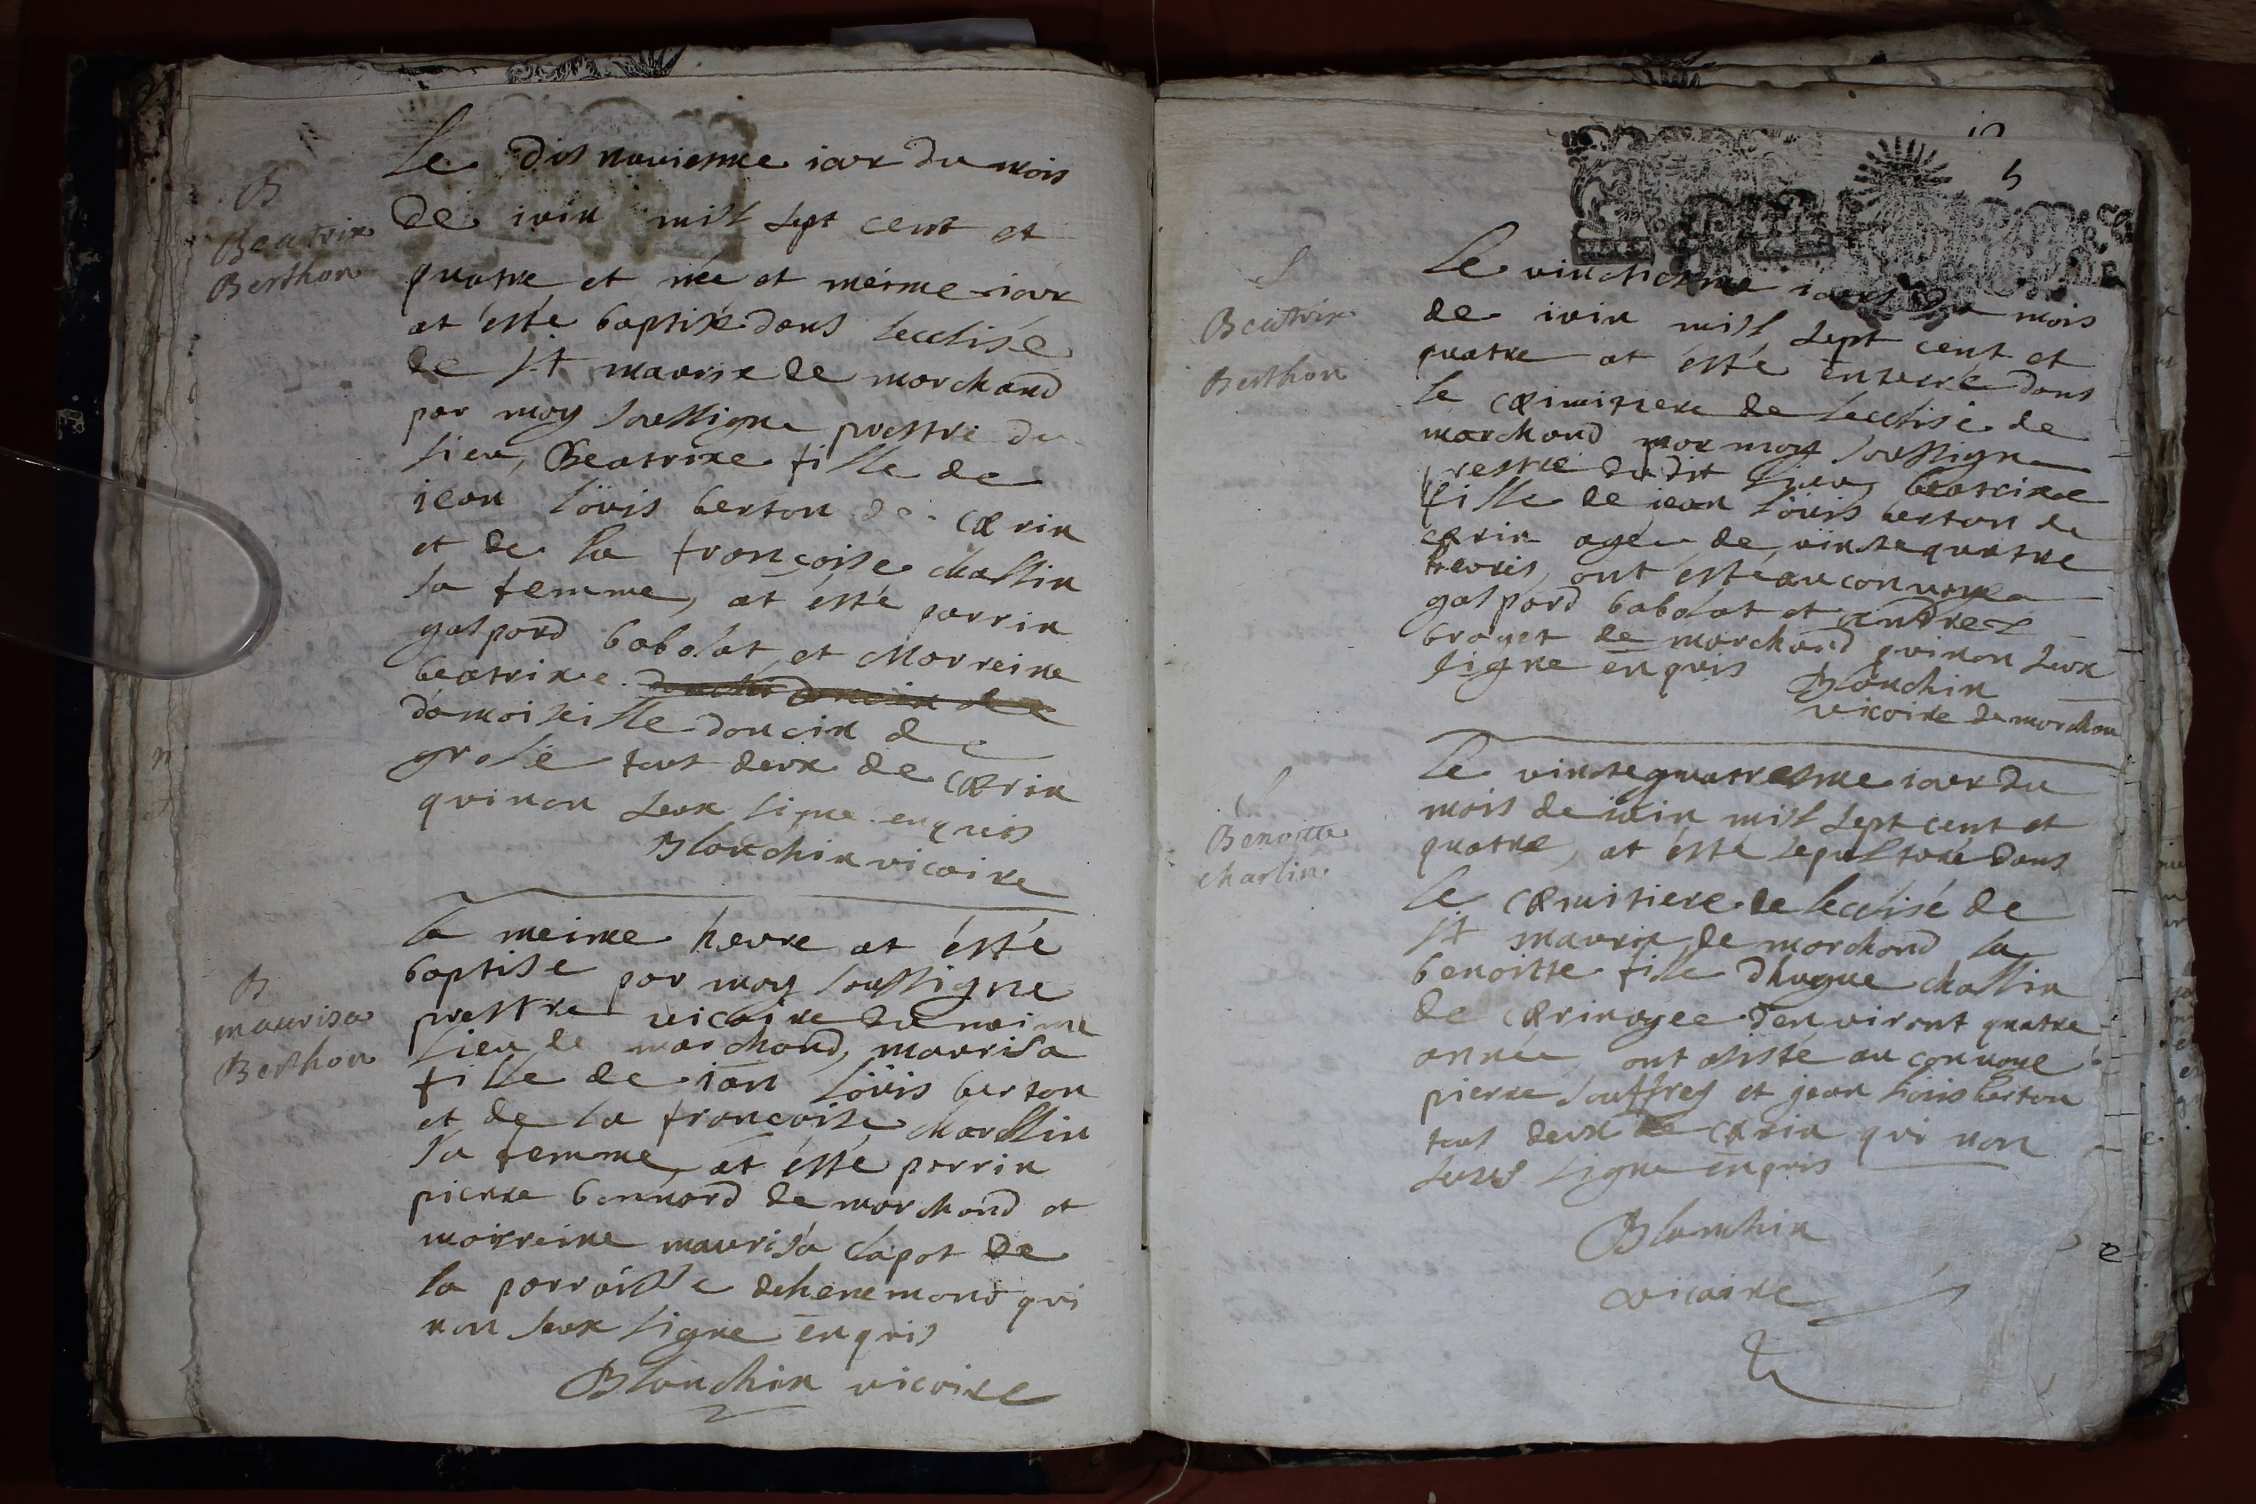 B
Beatrix
Berthon
Le dis naviesme iour du mois
de iuin mil sept cent et
quatre et née et méime iour
at ésté baptisé dans lecclisé
de st maurise de marchand
par moy soussigne prestre du
lieu, Beatrixe fille de
iean loüis berton de cœrin
et de la francoise chassin
sa femme, at ésté parrin
gaspard babolat et Marreine
beatrixe
damoiseille doncin de
grolé tous deux de cœrin
qui non seux signe enquis
Blanchin vicaire
B
maurisa
Berthon
la meime heure at ésté
baptise par moy soussigne
prestre vicaire du meime
lieu de marchand, maurisa
fille de ian loüis berton
et de la francoise charssin
sa femme, at ésté parrin
pierre bonnard de marchand et
mairreine maurisa clapot de
la parroisse dehenemond qui
non seux signe enquis
Blanchin vicaire
5
S
Beatrix
Berthon
Le vinctiesme iour du mois
de iuin mil sept cent et
quatre at ésté énterré dans
le cœimitiere de lecclisé de
marchand par moy soussigne
prestre du dit lieu beatrixe
fille de iean loüis berton de
cœrin agée de vinctequatre
heures, ont ésté au convoye
gaspard babolat et andre
brayet de marchand qui non seux
signe enquis Blanchin
vicaire de marchan
S
Benoitte
charlin
Le vinctequatresme iour du
mois de iuin mil sept cent et
quatre, at ésté sepulturé dans
le cœmitiere de lecclisé de
st maurix de marchand la
benoitte fille dhugue chassin
de cœrin agee denviront quatre
année ont asisté au convoye
pierre souffrey et jean loüis berton
tous deux de cœrin qui non
seux signe enquis
Blanchin
vicaire